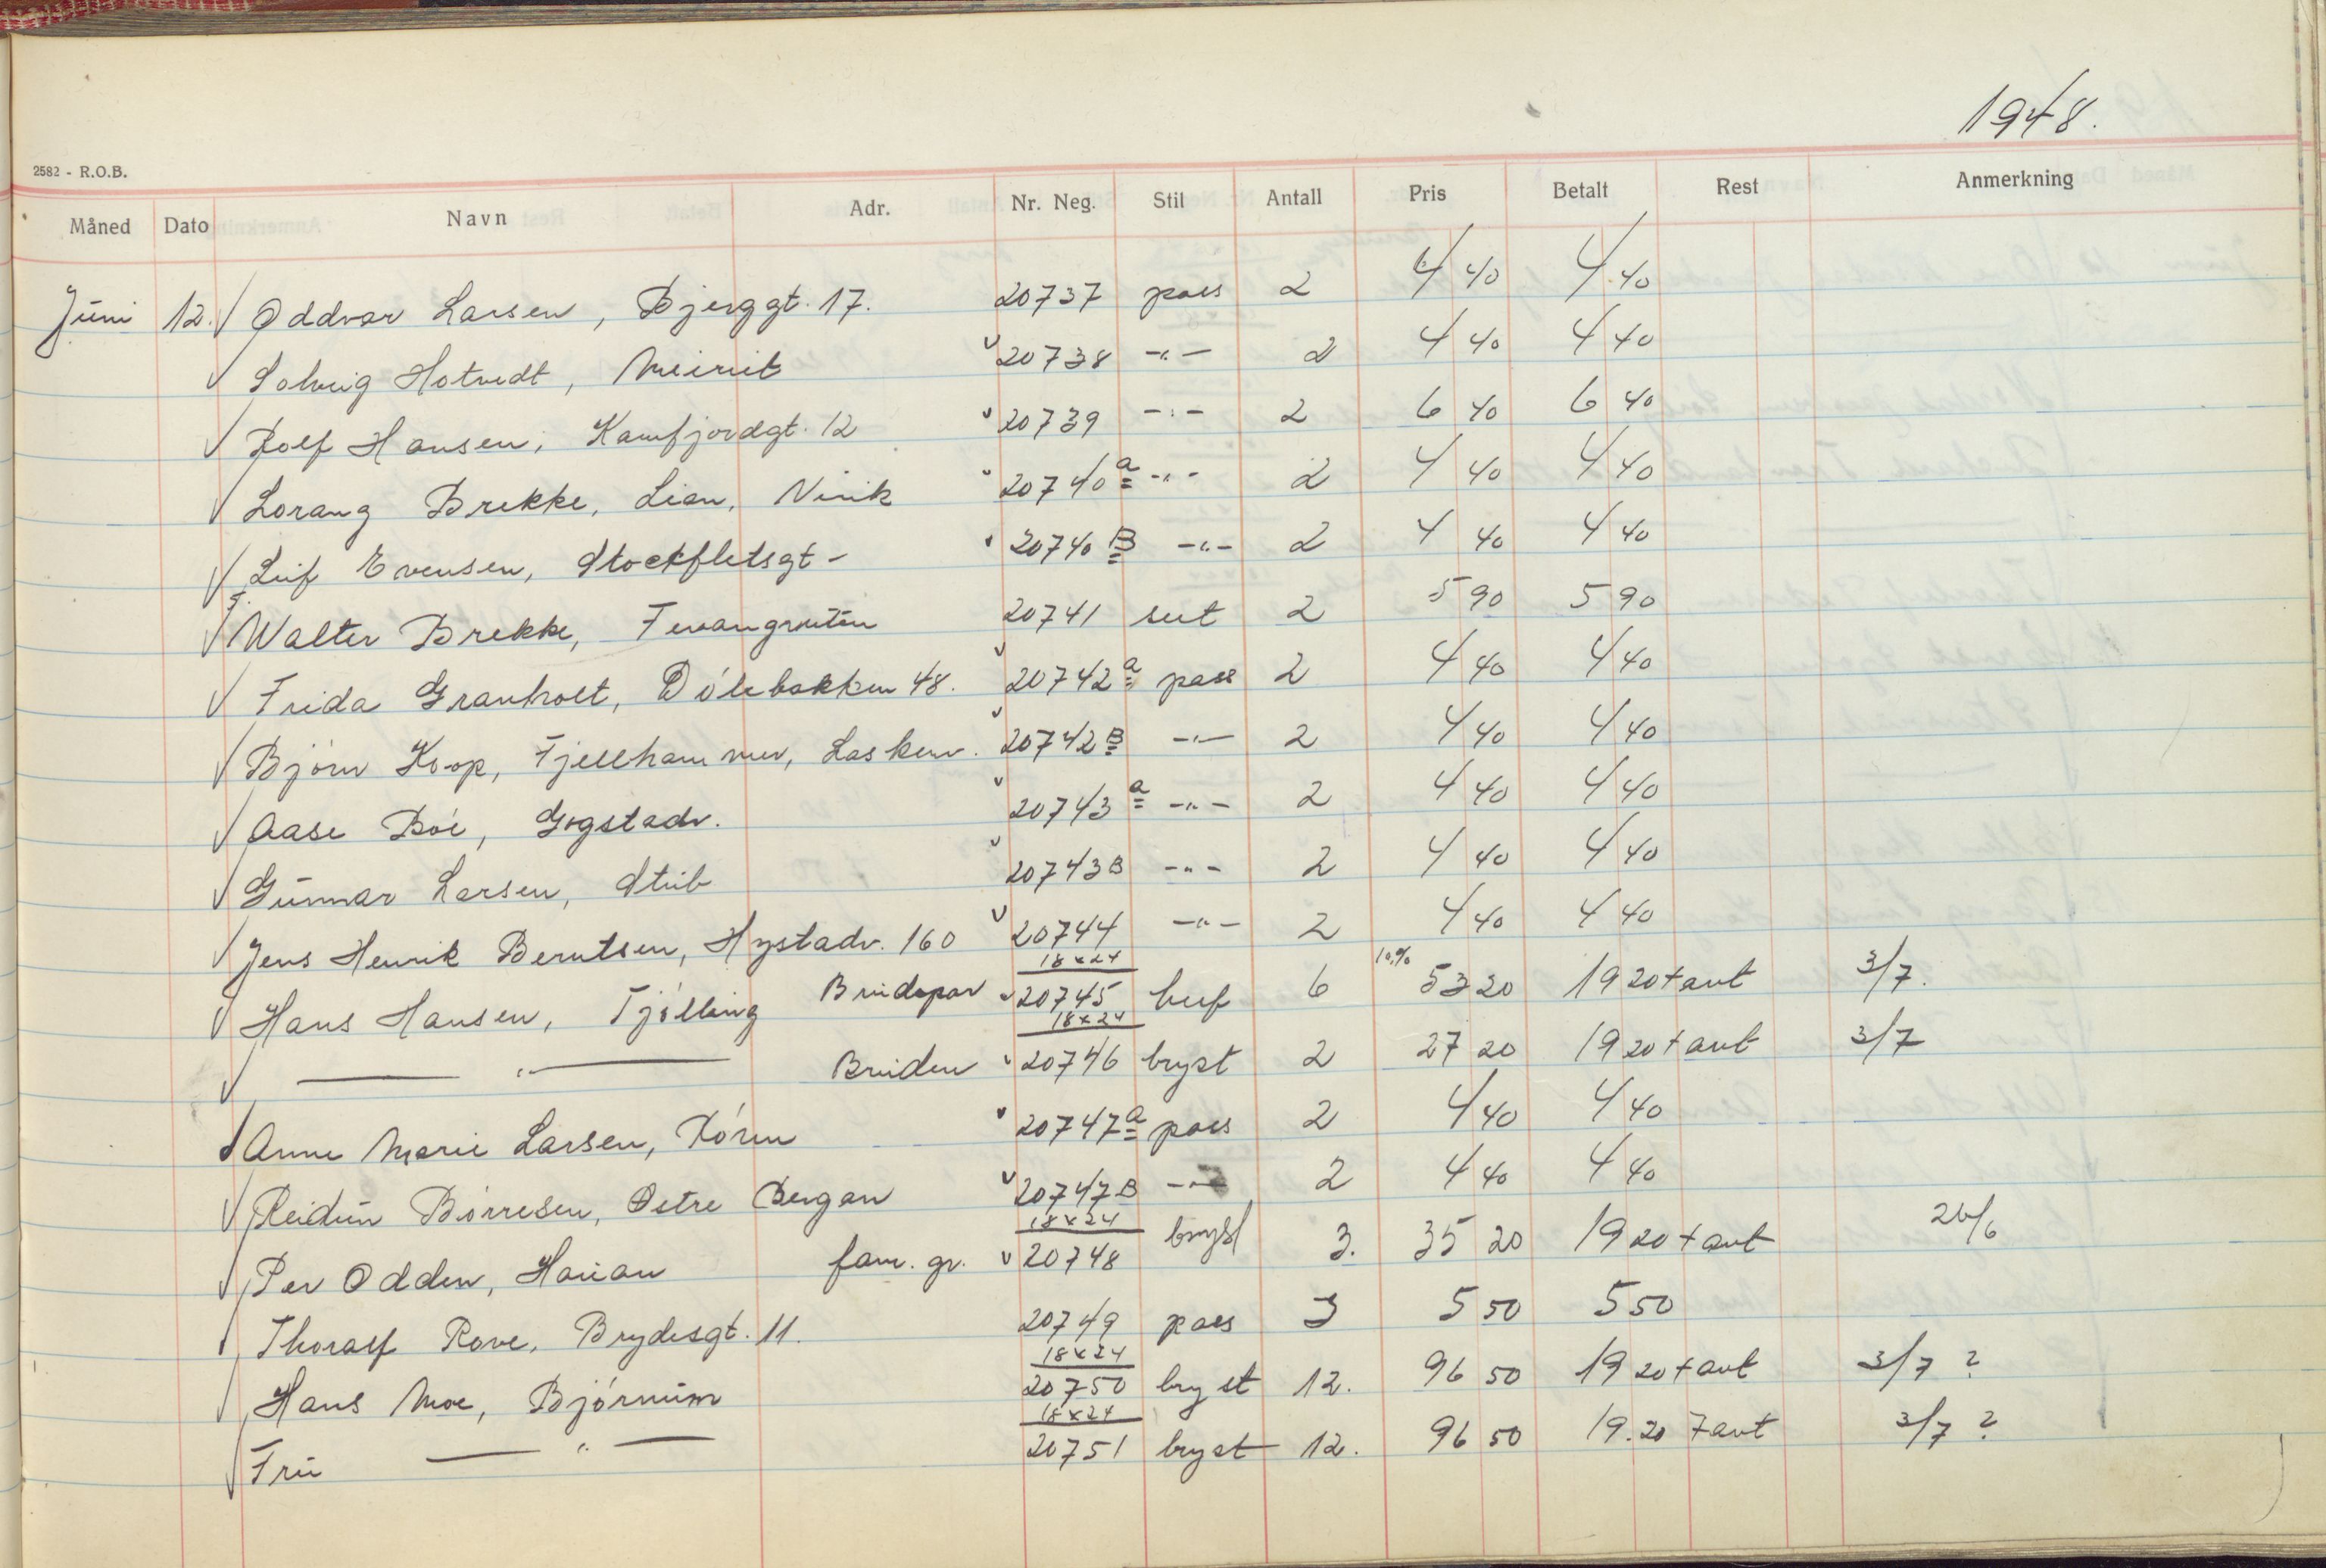 1948.
2582 - R.O.B.
Måned Dato Navn Adr. Nr. Neg. Stil Antall Pris Betalt Rest Anmerkning
Juni 12. Oddvar Larsen, Bjerggt. 17. 20737 pass 2 4 40 4.40
Solveig Hotvedt, 20738 -"- 2 4 40 4 40
Rolf Hansen, Kamfjordgt. 12 20739 -"- 2 6 40 6 40
Lorang Brekke, Lian, 20740 a -"- 2 4 40 4 40
Leif Evensen, Stockfletsgt- 20740 B -"- 2 4 40 4 40
Walter Brekke, 20741 2 5 90 5 90
Frida Granholt, Dölebakken 48. 20742 a pass 2 4 40 4 40
Björn Koop, Fjellhammer, 20742 B -"- 2 4 40 4 40
Aase Böe, Gogstadv. 20743 a -"- 2 4 40 4 40
Gunnar Larsen, Stub 20743 B -"- 2 4 40 4 40
Jens Henrik Berntsen, Hystadv. 160 20744 -"- 2 4 40 4 40
18x24
Hans Hansen, Tjölling Brudepar 20745 6 10% 53 20 19 20 + ant 3/7.
18x24
— " — Bruden 20746 bryst 2 27 20 19 20 + ant 3/7
Anne Marie Larsen, 20747 a pass 2 4 40 4 40
Reidun Börresen, Östre Bergan 20747 B -"- 2 4 40 4 40
18x24
Per Odden, fam. gr. 20748 bryst 3. 35 20 19 20 + ant 26/6
Thoralf Rove, Brydesgt. 11. 20749 pass 3 5 50 5 50
18x24
Hans Moe, Björnum 20750 bryst 12. 96 50 19 20 + ant 3/7 ?
18x24
Fru — " — 20751 bryst 12. 96 50 19.20 + ant 3/7 ?